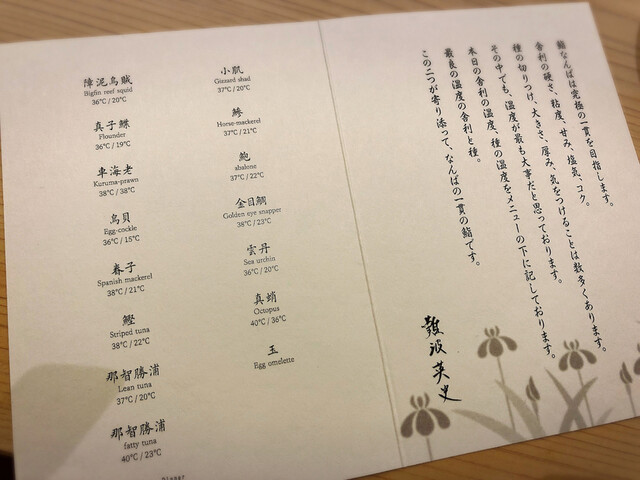 障泥烏賊
Bigfin reef squid
36℃ / 20℃
真子鰈
Flounder
36℃ / 19℃
車海老
Kuruma-prawn
38℃ / 38℃
鳥貝
Egg-cockle
36℃ / 15℃
春子
Spanish mackerel
38℃ / 21℃
鰹
Striped tuna
38℃ / 22℃
那智勝浦
Lean tuna
37℃ / 20℃
那智勝浦
fatty tuna
40℃ / 23℃
小肌
Gizzard shad
37℃ / 20℃
鯵
Horse-mackerel
37℃ / 21℃
鮑
abalone
37℃ / 22℃
金目鯛
Golden eye snapper
38℃ / 23℃
雲丹
Sea urchin
36℃ / 20℃
真蛸
Octopus
40℃ / 36℃
玉
Egg omelette
鮨なんばは究極の一貫を目指します。
舎利の硬さ、粘度、甘み、塩気、コク。
種の切りつけ、大きさ、厚み、気をつけることは数多くあります。
その中でも、温度が最も大事だと思っております。
本日の舎利の温度、種の温度をメニューの下に記しております。
最良の温度の舎利と種。
この二つが寄り添って、なんばの一貫の鮨です。
難波英史